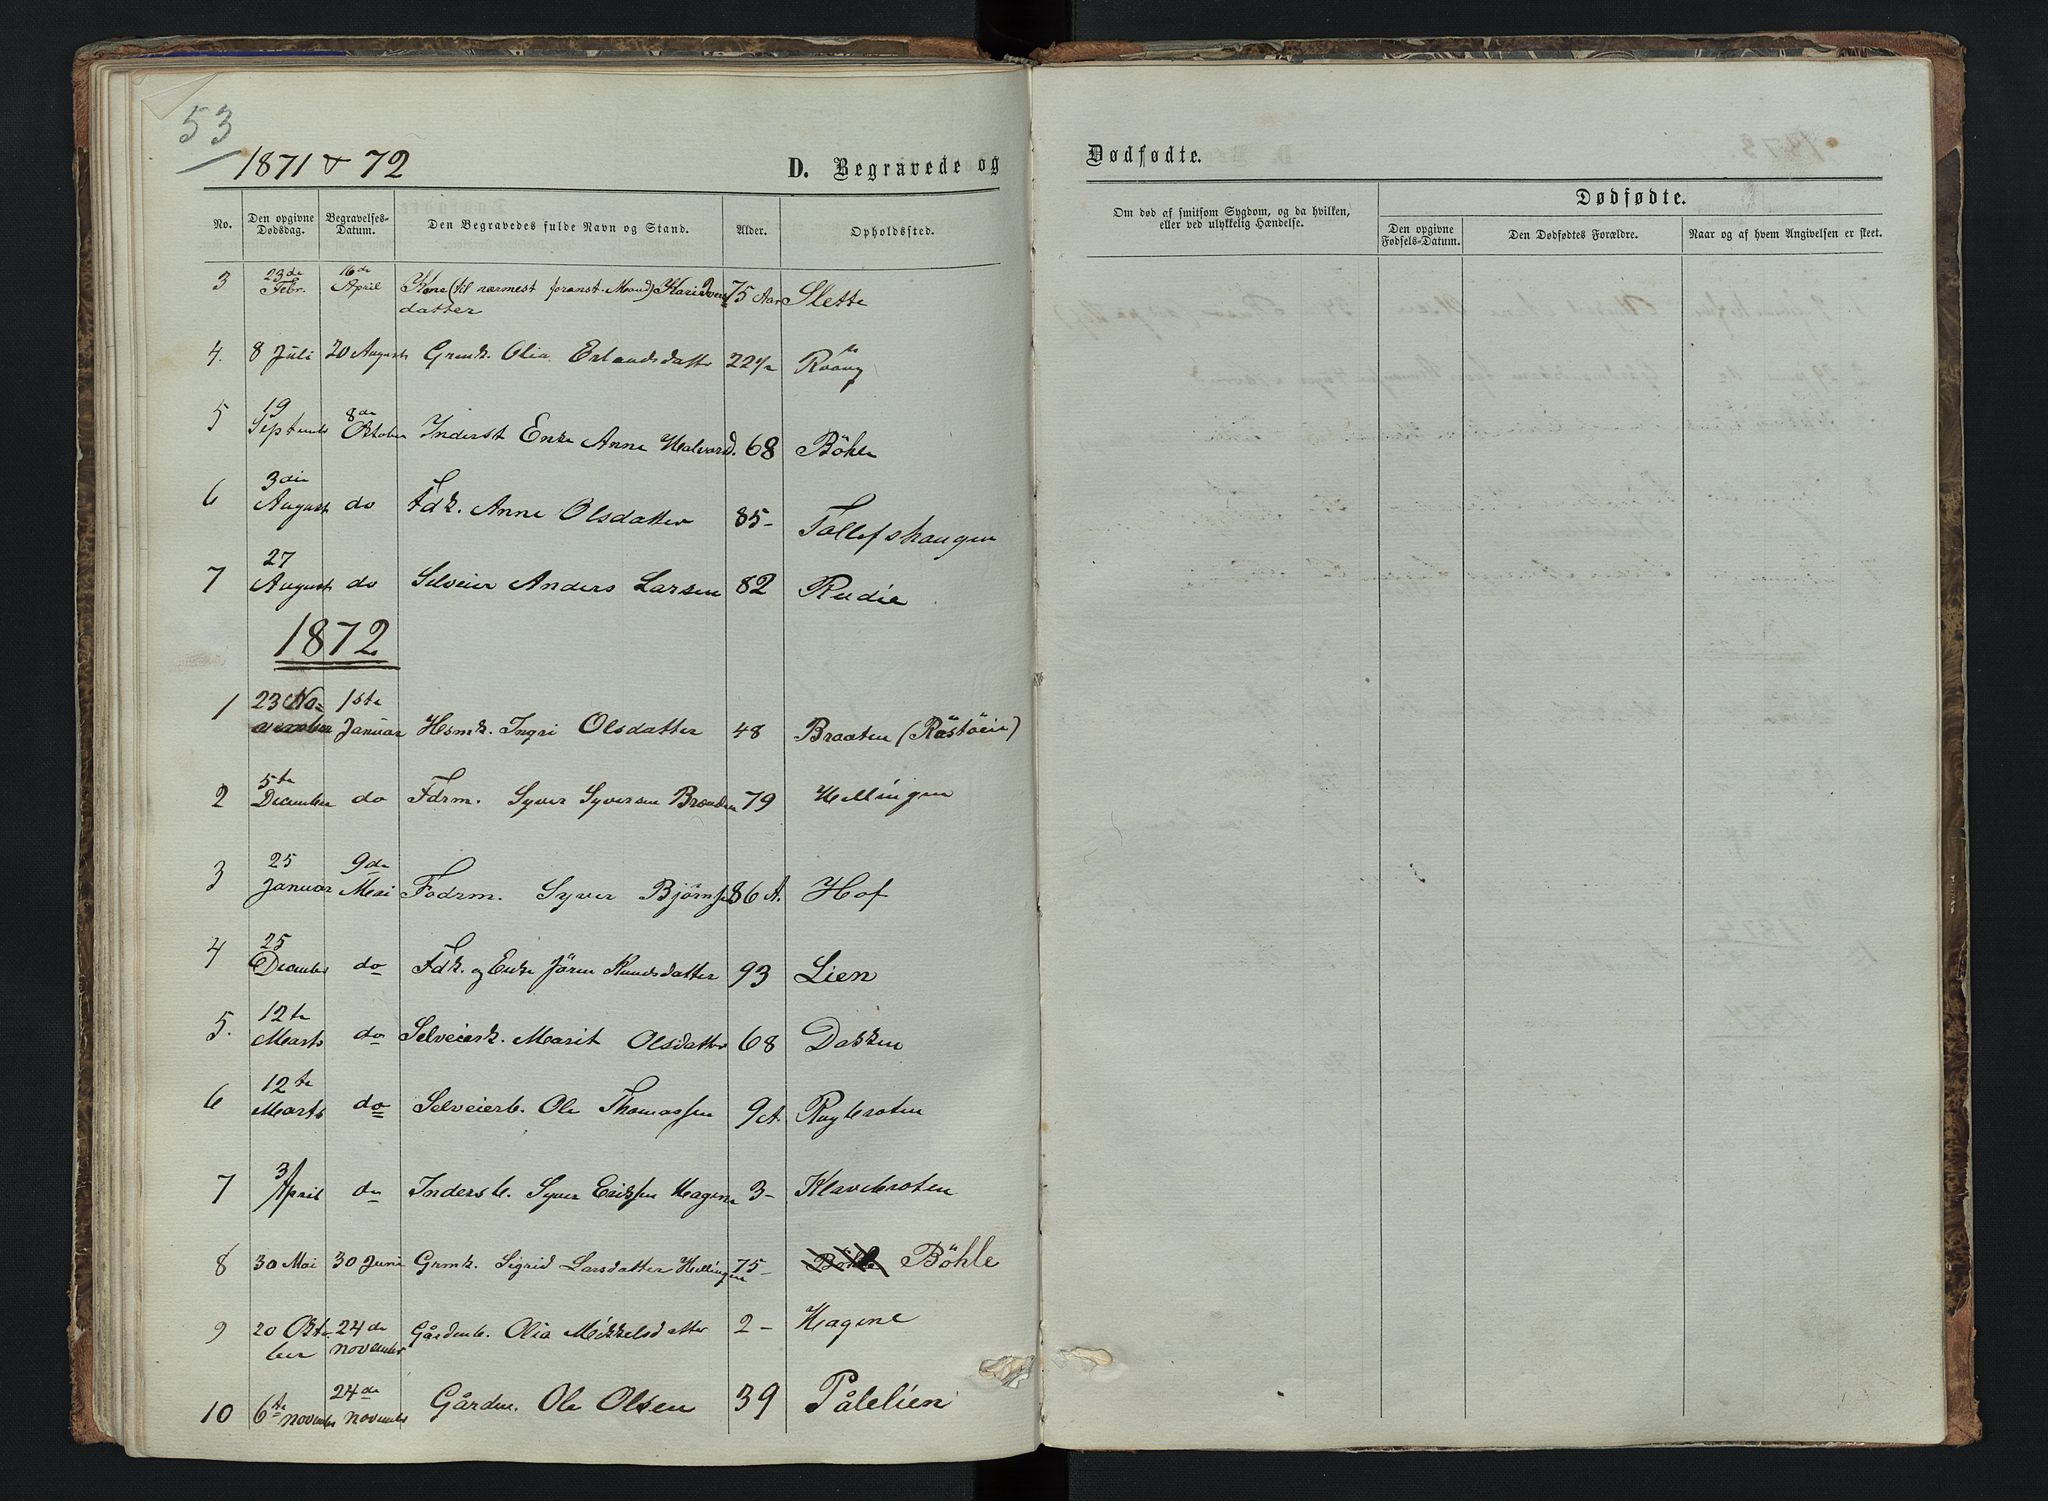 53
1871 & 72
D. Begravede og
Dødfødte.
No.
Den opgivne Dødsdag.
Begravelses-Datum.
Den Begravedes fulde Navn og Stand.
Alder.
Opholdssted.
Om død af smitsom Sygdom, og da hvilken, eller ved ulykkelig Hændelse.
Dødfødte.
Den opgivne Fødsels-Datum.
Den Dødfødtes Forældre.
Naar og af hvem Angivelsen er skeet.
3 23de Febr. 16de April Kone (til nærmest foranst. Mand) Kari datter 75 Aar Slette
4. 8 Juli 20 August Grmk. Olia Erlandsdatter 22 1/2
5 19 September 8de Oktober Inderst Enke Anne Halvord. 68 Böhle
6 3die August do Fdk. Anne Olsdatter 85- Tollefshaugen
7 27 August do Selveier Anders Larsen 82 Rudie
1872
1 23 November 1ste Januar Hsmk. Ingri Olsdatter 48 Braaten (Råstöein)
2 5te December do Fdrm. Syver Syversen Brænden 79 Hellingen
3 25 Januar 9de Mai Fodrm. Syver Björnsen 86 A. Hof
4 25 December do Fdk. og Enke Jören Knudsdatter 93 Lien
5. 12te Marts do Selveierk. Marit Olsdatter 68 Dokken
6 12te Marts do Selveierb. Ole Thomassen 9 A. Rugbroten
7 3 April do Inderstb. Syver Eriksen Hagene 3- Klavebroten
8 30 Mai 30 Juni Grmk. Sigrid Larsdatter Hellingen 75- Böhle Böhle
9 20 Oktober 24de november Gårdmb. Olia Mikkelsdatter 2- Hagene
10 6te november 24de november Gårdm. Ole Olsen 39 Pålelien